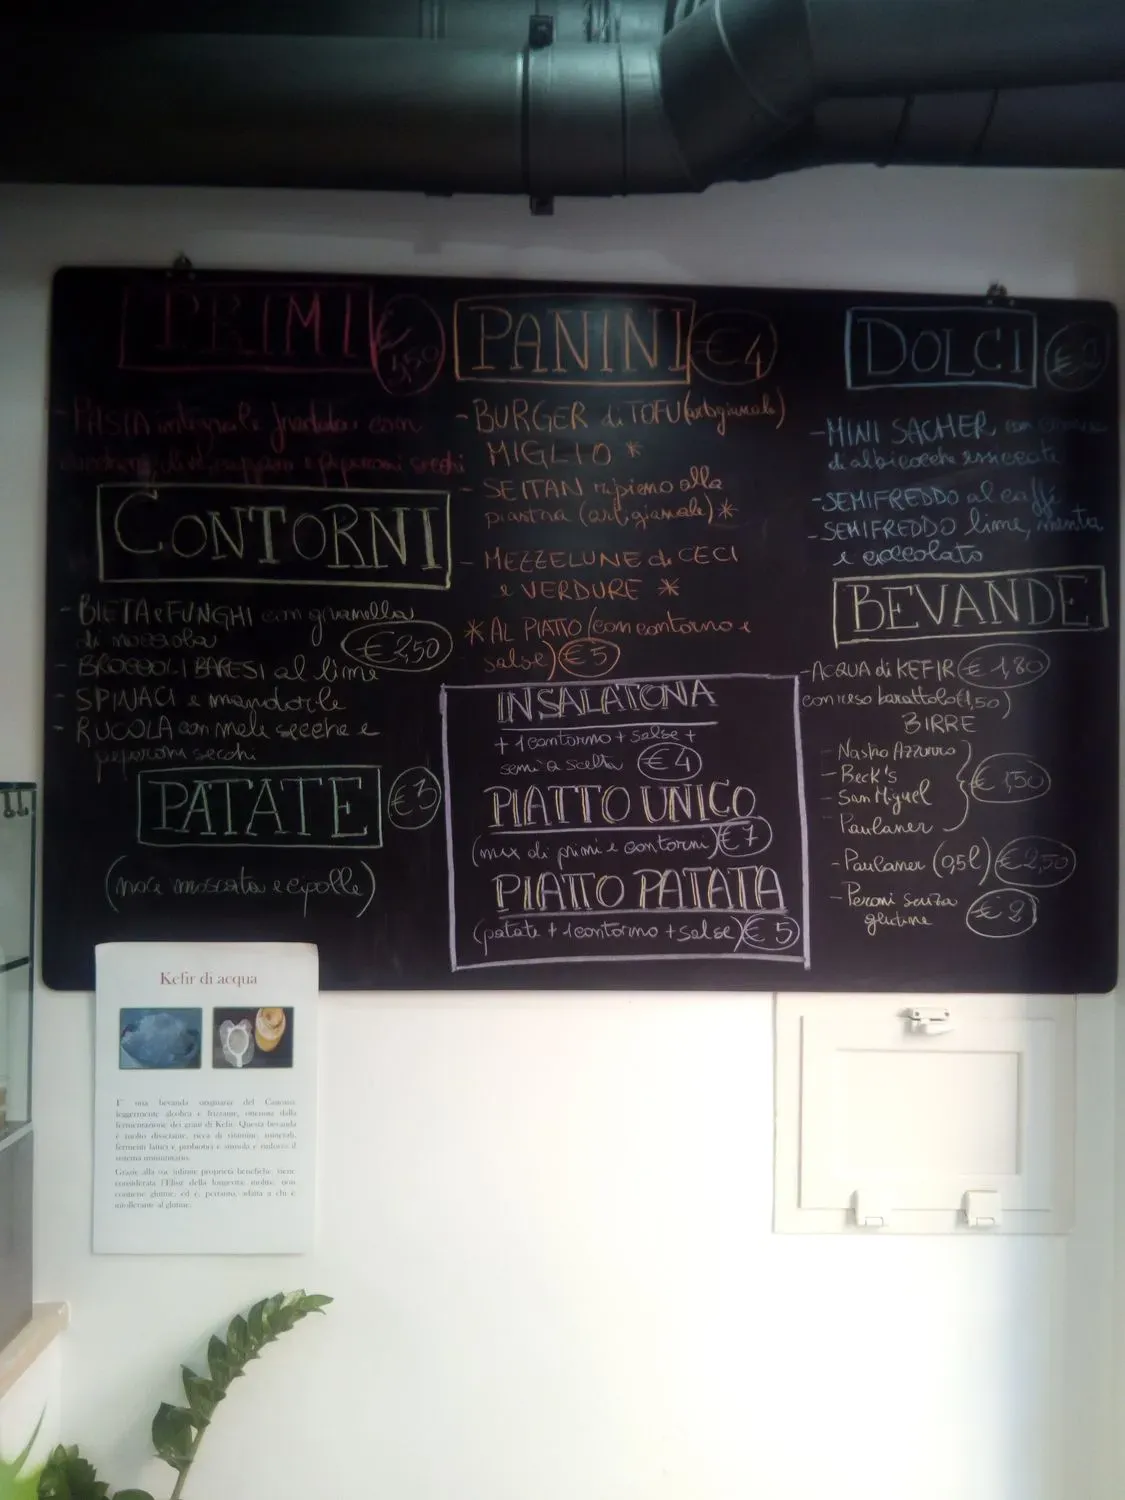 PRIMI
- PASTA integrale con
e peperoni secchi
CONTORNI
- BIETA e FUNGHI con granella
di nocciola € 2,50
- BROCCOLI BARESI al lime
- SPINACI e mandorle
- RUCOLA con mele secche e
peperoni secchi
PATATE € 3
(noce moscata e cipolle)
PANINI € 4
- BURGER di TOFU (artigianale)
MIGLIO *
- SEITAN ripieno alla
piastra (artigianale) *
- MEZZELUNE di CECI
e VERDURE *
* AL PIATTO (con contorno e
salse) € 5
INSALATONA
+ 1 contorno + salse +
semi a scelta € 4
PIATTO UNICO
(mix di primi e contorni) € 7
PIATTO PATATA
(patate + 1 contorno + salse) € 5
DOLCI € 2
- MINI SACHER con
di albicocche essiccate
- SEMIFREDDO al caffé
- SEMIFREDDO lime, menta
e cioccolato
BEVANDE
- ACQUA di KEFIR € 1,80
con reso barattolo (1,50)
BIRRE
- Nastro Azzurro
- Beck's
- San Miguel
- Paulaner
€ 1,50
- Paulaner (0,5l) € 2,50
- Peroni senza
glutine € 2
Kefir di acqua
E' una bevanda originaria del Caucaso
leggermente alcolica e frizzante, ottenuta dalla
fermentazione dei grani di Kefir. Questa bevanda
è molto dissetante, ricca di vitamine, minerali,
fermenti lattici e probiotici e stimola e rinforza il
sistema immunitario.
Grazie alla sue infinite proprietà benefiche, viene
considerata l'Elisir della longevità, inoltre, non
contiene glutine, ed è, pertanto, adatta a chi è
intollerante al glutine.